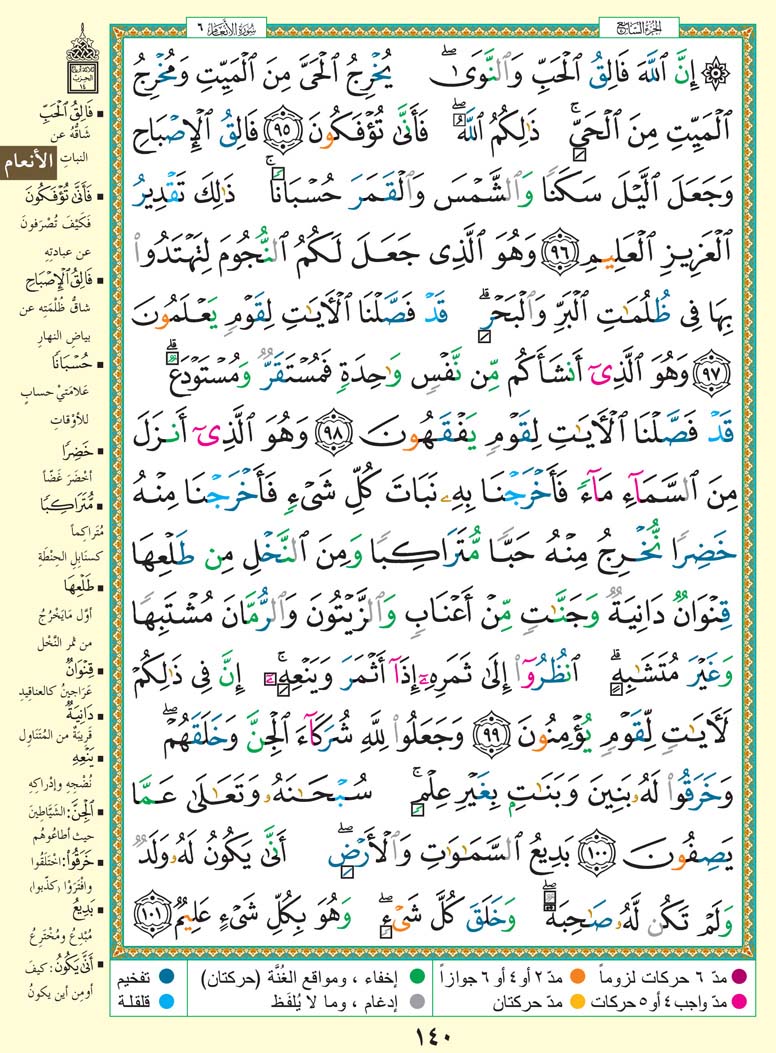 الجزء السابع
سورة الأنعام ٦
۞ إِنَّ ٱللَّهَ فَالِقُ ٱلْحَبِّ وَٱلنَّوَىٰ ۖ يُخْرِجُ ٱلْحَىَّ مِنَ ٱلْمَيِّتِ وَمُخْرِجُ
ٱلْمَيِّتِ مِنَ ٱلْحَىِّ ۚ ذَٰلِكُمُ ٱللَّهُ ۖ فَأَنَّىٰ تُؤْفَكُونَ ٩٥ فَالِقُ ٱلْإِصْبَاحِ
وَجَعَلَ ٱلَّيْلَ سَكَنًا وَٱلشَّمْسَ وَٱلْقَمَرَ حُسْبَانًا ۚ ذَٰلِكَ تَقْدِيرُ
ٱلْعَزِيزِ ٱلْعَلِيمِ ٩٦ وَهُوَ ٱلَّذِى جَعَلَ لَكُمُ ٱلنُّجُومَ لِتَهْتَدُوا۟
بِهَا فِى ظُلُمَٰتِ ٱلْبَرِّ وَٱلْبَحْرِ ۗ قَدْ فَصَّلْنَا ٱلْءَايَٰتِ لِقَوْمٍ يَعْلَمُونَ
٩٧ وَهُوَ ٱلَّذِىٓ أَنشَأَكُم مِّن نَّفْسٍ وَٰحِدَةٍ فَمُسْتَقَرٌّ وَمُسْتَوْدَعٌ ۗ
قَدْ فَصَّلْنَا ٱلْءَايَٰتِ لِقَوْمٍ يَفْقَهُونَ ٩٨ وَهُوَ ٱلَّذِىٓ أَنزَلَ
مِنَ ٱلسَّمَآءِ مَآءً فَأَخْرَجْنَا بِهِۦ نَبَاتَ كُلِّ شَىْءٍ فَأَخْرَجْنَا مِنْهُ
خَضِرًا نُّخْرِجُ مِنْهُ حَبًّا مُّتَرَاكِبًا وَمِنَ ٱلنَّخْلِ مِن طَلْعِهَا
قِنْوَانٌ دَانِيَةٌ وَجَنَّٰتٍ مِّنْ أَعْنَابٍ وَٱلزَّيْتُونَ وَٱلرُّمَّانَ مُشْتَبِهًا
وَغَيْرَ مُتَشَٰبِهٍ ۗ ٱنظُرُوٓا۟ إِلَىٰ ثَمَرِهِۦٓ إِذَآ أَثْمَرَ وَيَنْعِهِۦٓ ۚ إِنَّ فِى ذَٰلِكُمْ
لَءَايَٰتٍ لِّقَوْمٍ يُؤْمِنُونَ ٩٩ وَجَعَلُوا۟ لِلَّهِ شُرَكَآءَ ٱلْجِنَّ وَخَلَقَهُمْ ۖ
وَخَرَقُوا۟ لَهُۥ بَنِينَ وَبَنَٰتٍ بِغَيْرِ عِلْمٍ ۚ سُبْحَٰنَهُۥ وَتَعَٰلَىٰ عَمَّا
يَصِفُونَ ١٠٠ بَدِيعُ ٱلسَّمَٰوَٰتِ وَٱلْأَرْضِ ۖ أَنَّىٰ يَكُونُ لَهُۥ وَلَدٌ
وَلَمْ تَكُن لَّهُۥ صَٰحِبَةٌ ۖ وَخَلَقَ كُلَّ شَىْءٍ ۖ وَهُوَ بِكُلِّ شَىْءٍ عَلِيمٌ ١٠١
ثلاثة أرباع
الحزب
١٤
الأنعام
فَالِقُ ٱلْحَبِّ
شاقُّه عن
النبات
فَأَنَّىٰ تُؤْفَكُونَ
فَكَيْفَ تُصْرَفونَ
عن عبادتِهِ
فَالِقُ ٱلْإِصْبَاحِ
شاقُّ ظُلْمَتِه عن
بياضِ النهارِ
حُسْبَانًا
عَلامَتَيْ حسابٍ
للأوْقاتِ
خَضِرًا
أخْضَرَ غَضّاً
مُّتَرَاكِبًا
مُتَراكِماً
كسنابلِ الحِنْطَةِ
طَلْعِهَا
أوّل مَا يَخْرُجُ
من ثمر النَّخْل
قِنْوَانٌ
عَرَاجِينُ كالعناقيدِ
دَانِيَةٌ
قريبَةٌ من المُتَنَاوِل
يَنْعِهِ
نُضْجِهِ وإدراكِهِ
ٱلْجِنَّ: الشَّيَاطينَ
حيث أطاعُوهُم
خَرَقُوا۟: اخْتَلَقُوا
وافْتَرَوْا (كذّبوا)
بَدِيعُ
مُبْدِعُ ومُخْتَرِعُ
أَنَّىٰ يَكُونُ: كيفَ
أومِن أين يكونُ
مدّ ٦ حركات لزوماً
مدّ ٢ أو ٤ أو ٦ جوازاً
إخفاء، ومواقع الغُنَّة (حركتان)
تفخيم
مدّ واجب ٤ أو ٥ حركات
مدّ حركتان
إدغام، وما لا يُلفَظ
قلقلة
١٤٠